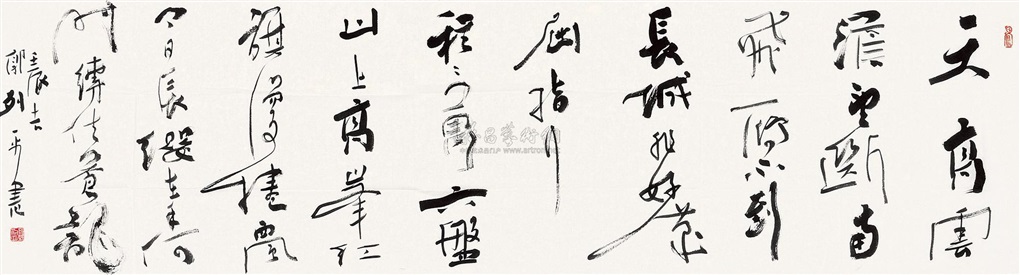 天高雲
淡望斷南
飛雁不到
長城非好漢
屈指行
程二萬六盤
山上高峯紅
旗漫捲西風
今日長纓在手何
时縛住蒼龍
壬辰
郭列平書